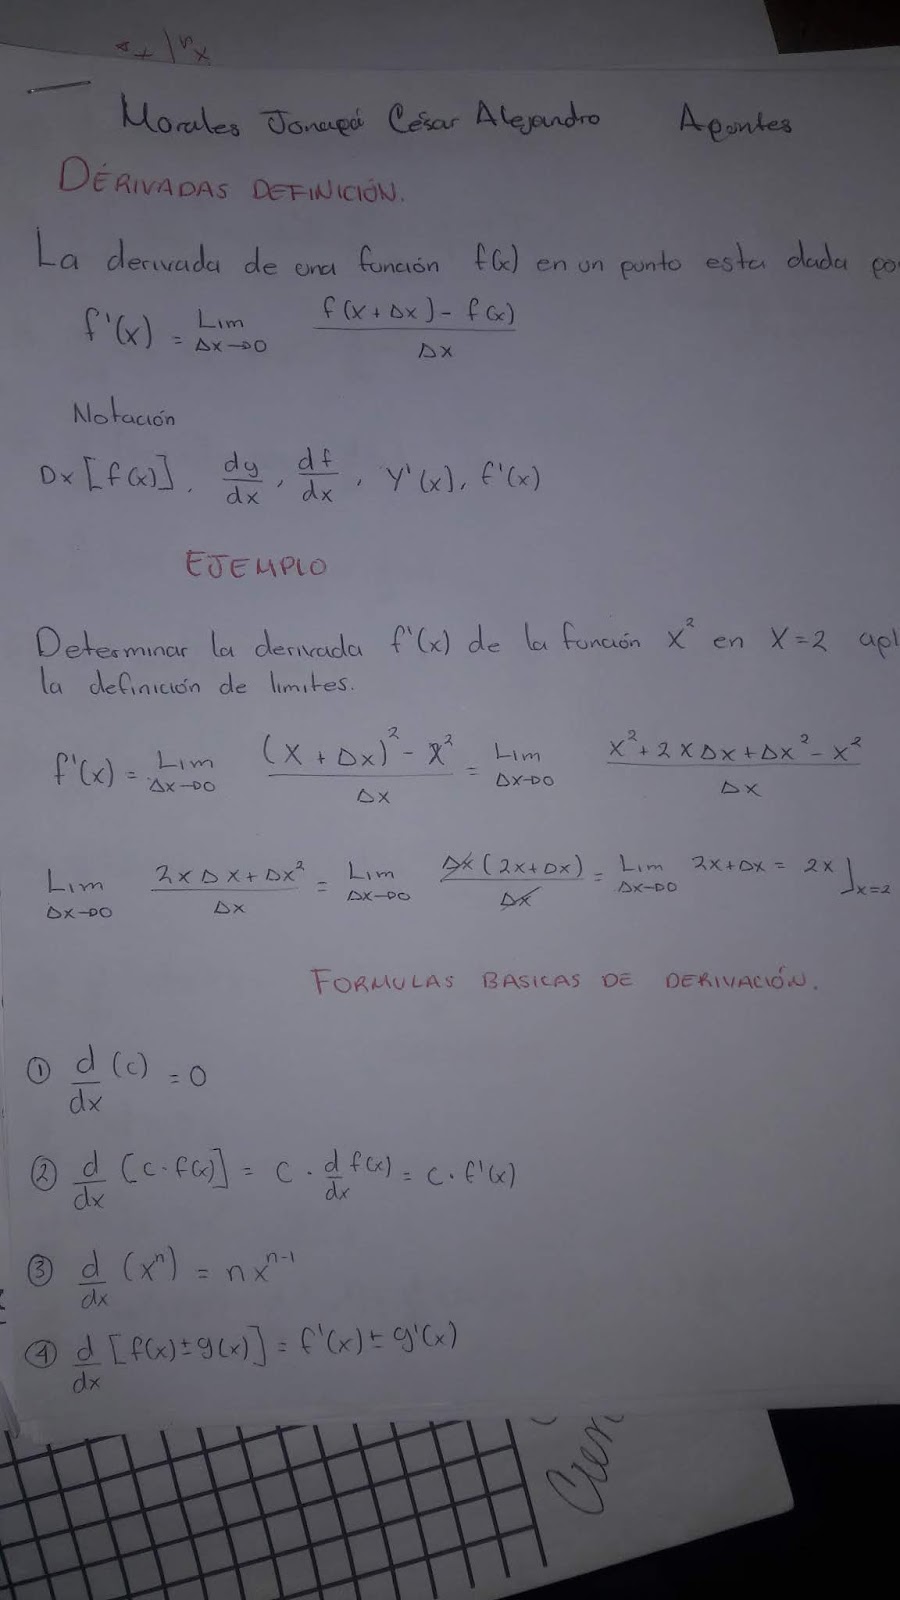 Morales Jonapá César Alejandro Apontes
DÉRIVADAS DEFINICIÓN.
La derivada de una función f(x) en un punto esta dada po
f'(x) = Lim Δx→0 f(x+Δx) - f(x) / Δx
Notación
Dx [f(x)], dy/dx, df/dx, Y'(x), f'(x)
EJEMPLO
Determinar la derivada f'(x) de la función x² en X=2 apl
la definición de limites.
f'(x) = Lim Δx→0 (x + Δx)² - x² / Δx = Lim Δx→0 x² + 2xΔx + Δx² - x² / Δx
Lim Δx→0 2xΔx + Δx² / Δx = Lim Δx→0 Δx (2x+Δx) / Δx = Lim Δx→0 2x+Δx = 2x]x=2
FORMULAS BASICAS DE DERIVACIÓN.
① d/dx (c) = 0
② d/dx [c·f(x)] = c · d/dx f(x) = c · f'(x)
③ d/dx (xⁿ) = nxⁿ⁻¹
④ d/dx [f(x)±g(x)] = f'(x) ± g'(x)